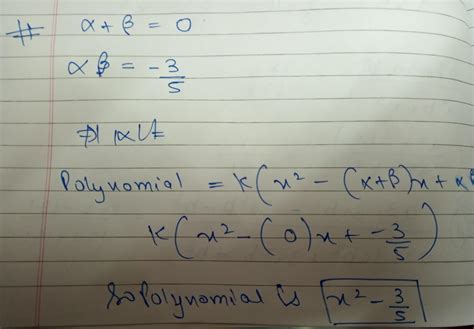 # α + β = 0
αβ = -3/5
Polynomial = K(x² - (α+β)x + αβ
K(x² - (0)x + -3/5)
So Polynomial is x² - 3/5